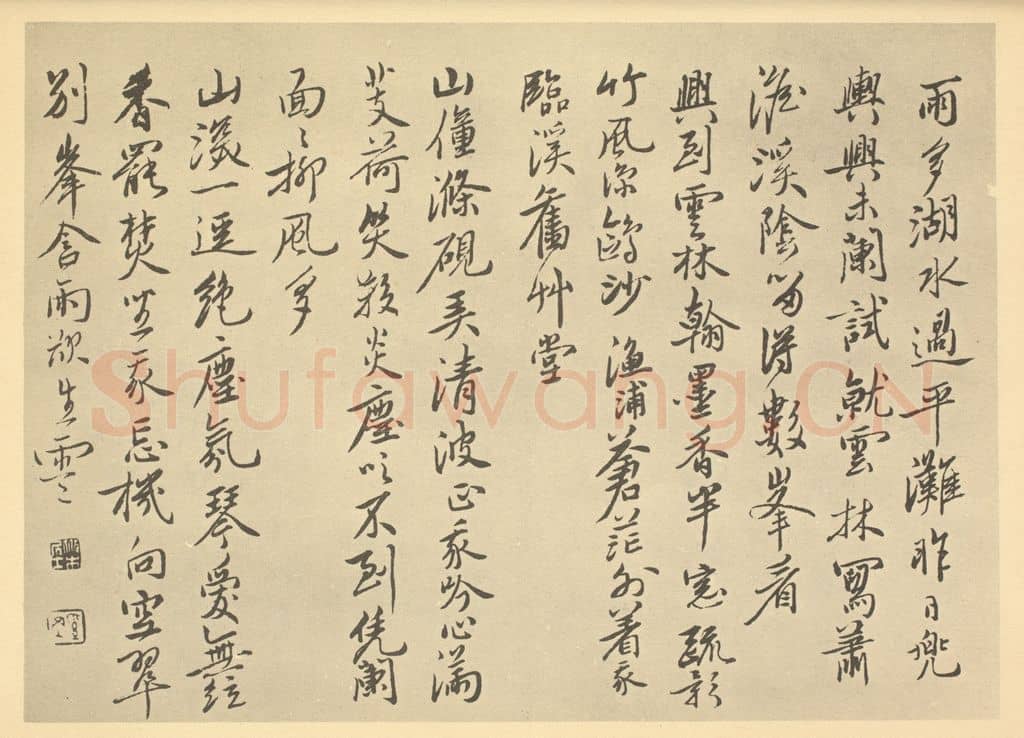 雨多湖水過平灘昨日兜
輿興未闌試就雲林寫蕭
澹溪陰留得數峯看
興到雲林翰墨香半窓疏影
竹風涼鷗沙漁浦蒼茫外着我
臨溪舊艸堂
山僮滌硯弄清波正我吟心滿
芰荷笑殺炎塵吹不到凭闌
面〻柳風多
山深一逕絶塵氛琴愛無絃
香罷焚坐我忘機向空翠
別峯含雨欲生雲
Shufawang.CN